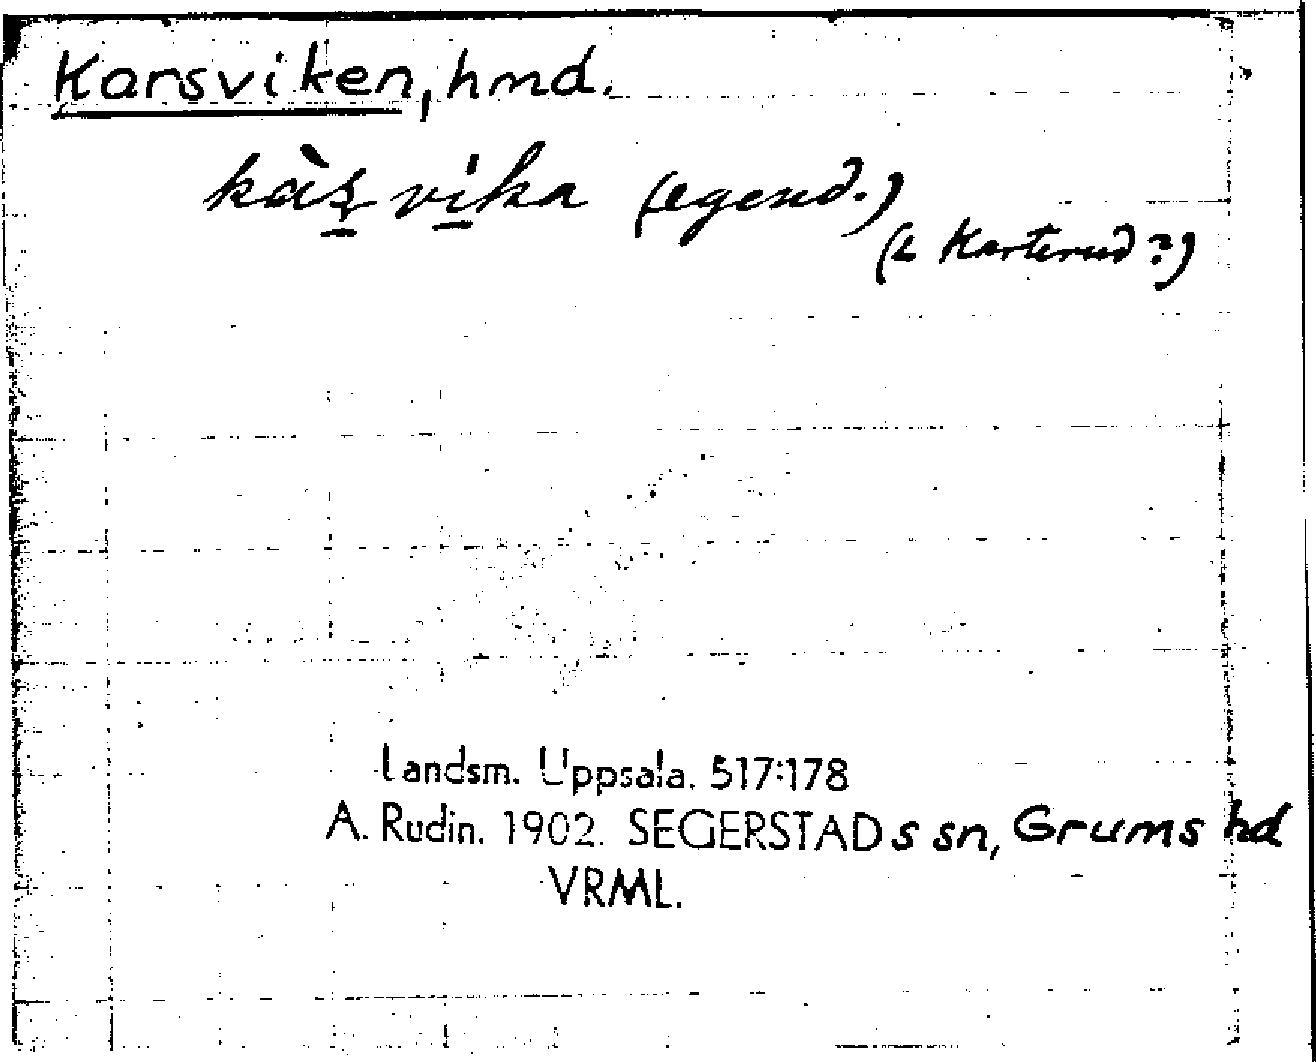 Karsviken, hmd.
kàs̱ vi̱ka (egend.)
(L Karterud?)
Landsm. Uppsala. 517:178
A. Rudin. 1902. SEGERSTADs sn, Grums hd
VRML.